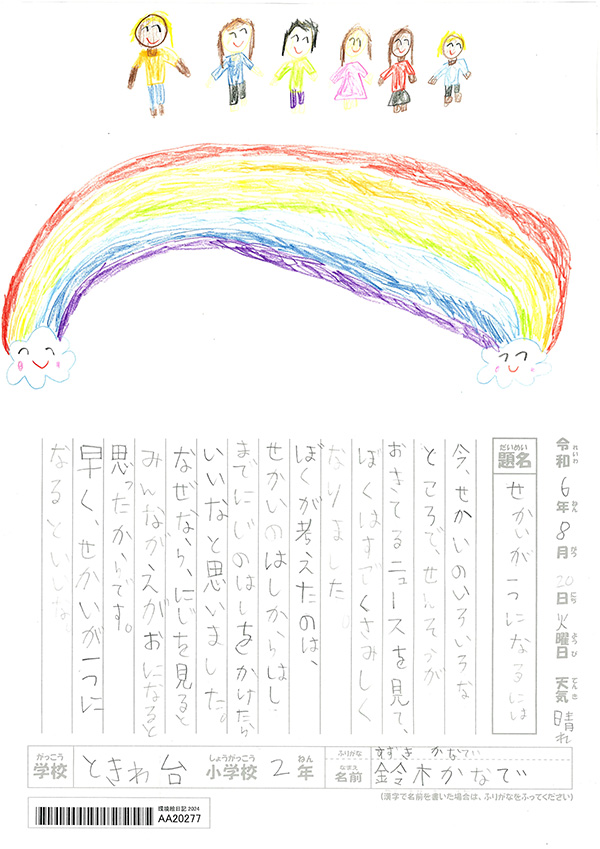 令和6年8月20日火曜日 天気晴れ
れいわ ねん がつ にち ようび てんき
だいめい
題名 せかいが一つになるには
今、せかいのいろいろな
ところで、せんそうが
おきてるニュースを見て、
ぼくはすごくさみしく
なりました。
ぼくが考えたのは、
せかいのはしからはし
までにじのはしをかけたら
いいなと思いました。
なぜなら、にじを見ると
みんながえがおになると
思ったからです。
早く、せかいが一つに
なるといいな。
がっこう しょうがっこう ねん ふりがな すずき かなで
学校 ときわ台 小学校 2年 なまえ 名前 鈴木かなで
(漢字で名前を書いた場合は、ふりがなをふってください)
環境絵日記 2024
AA20277